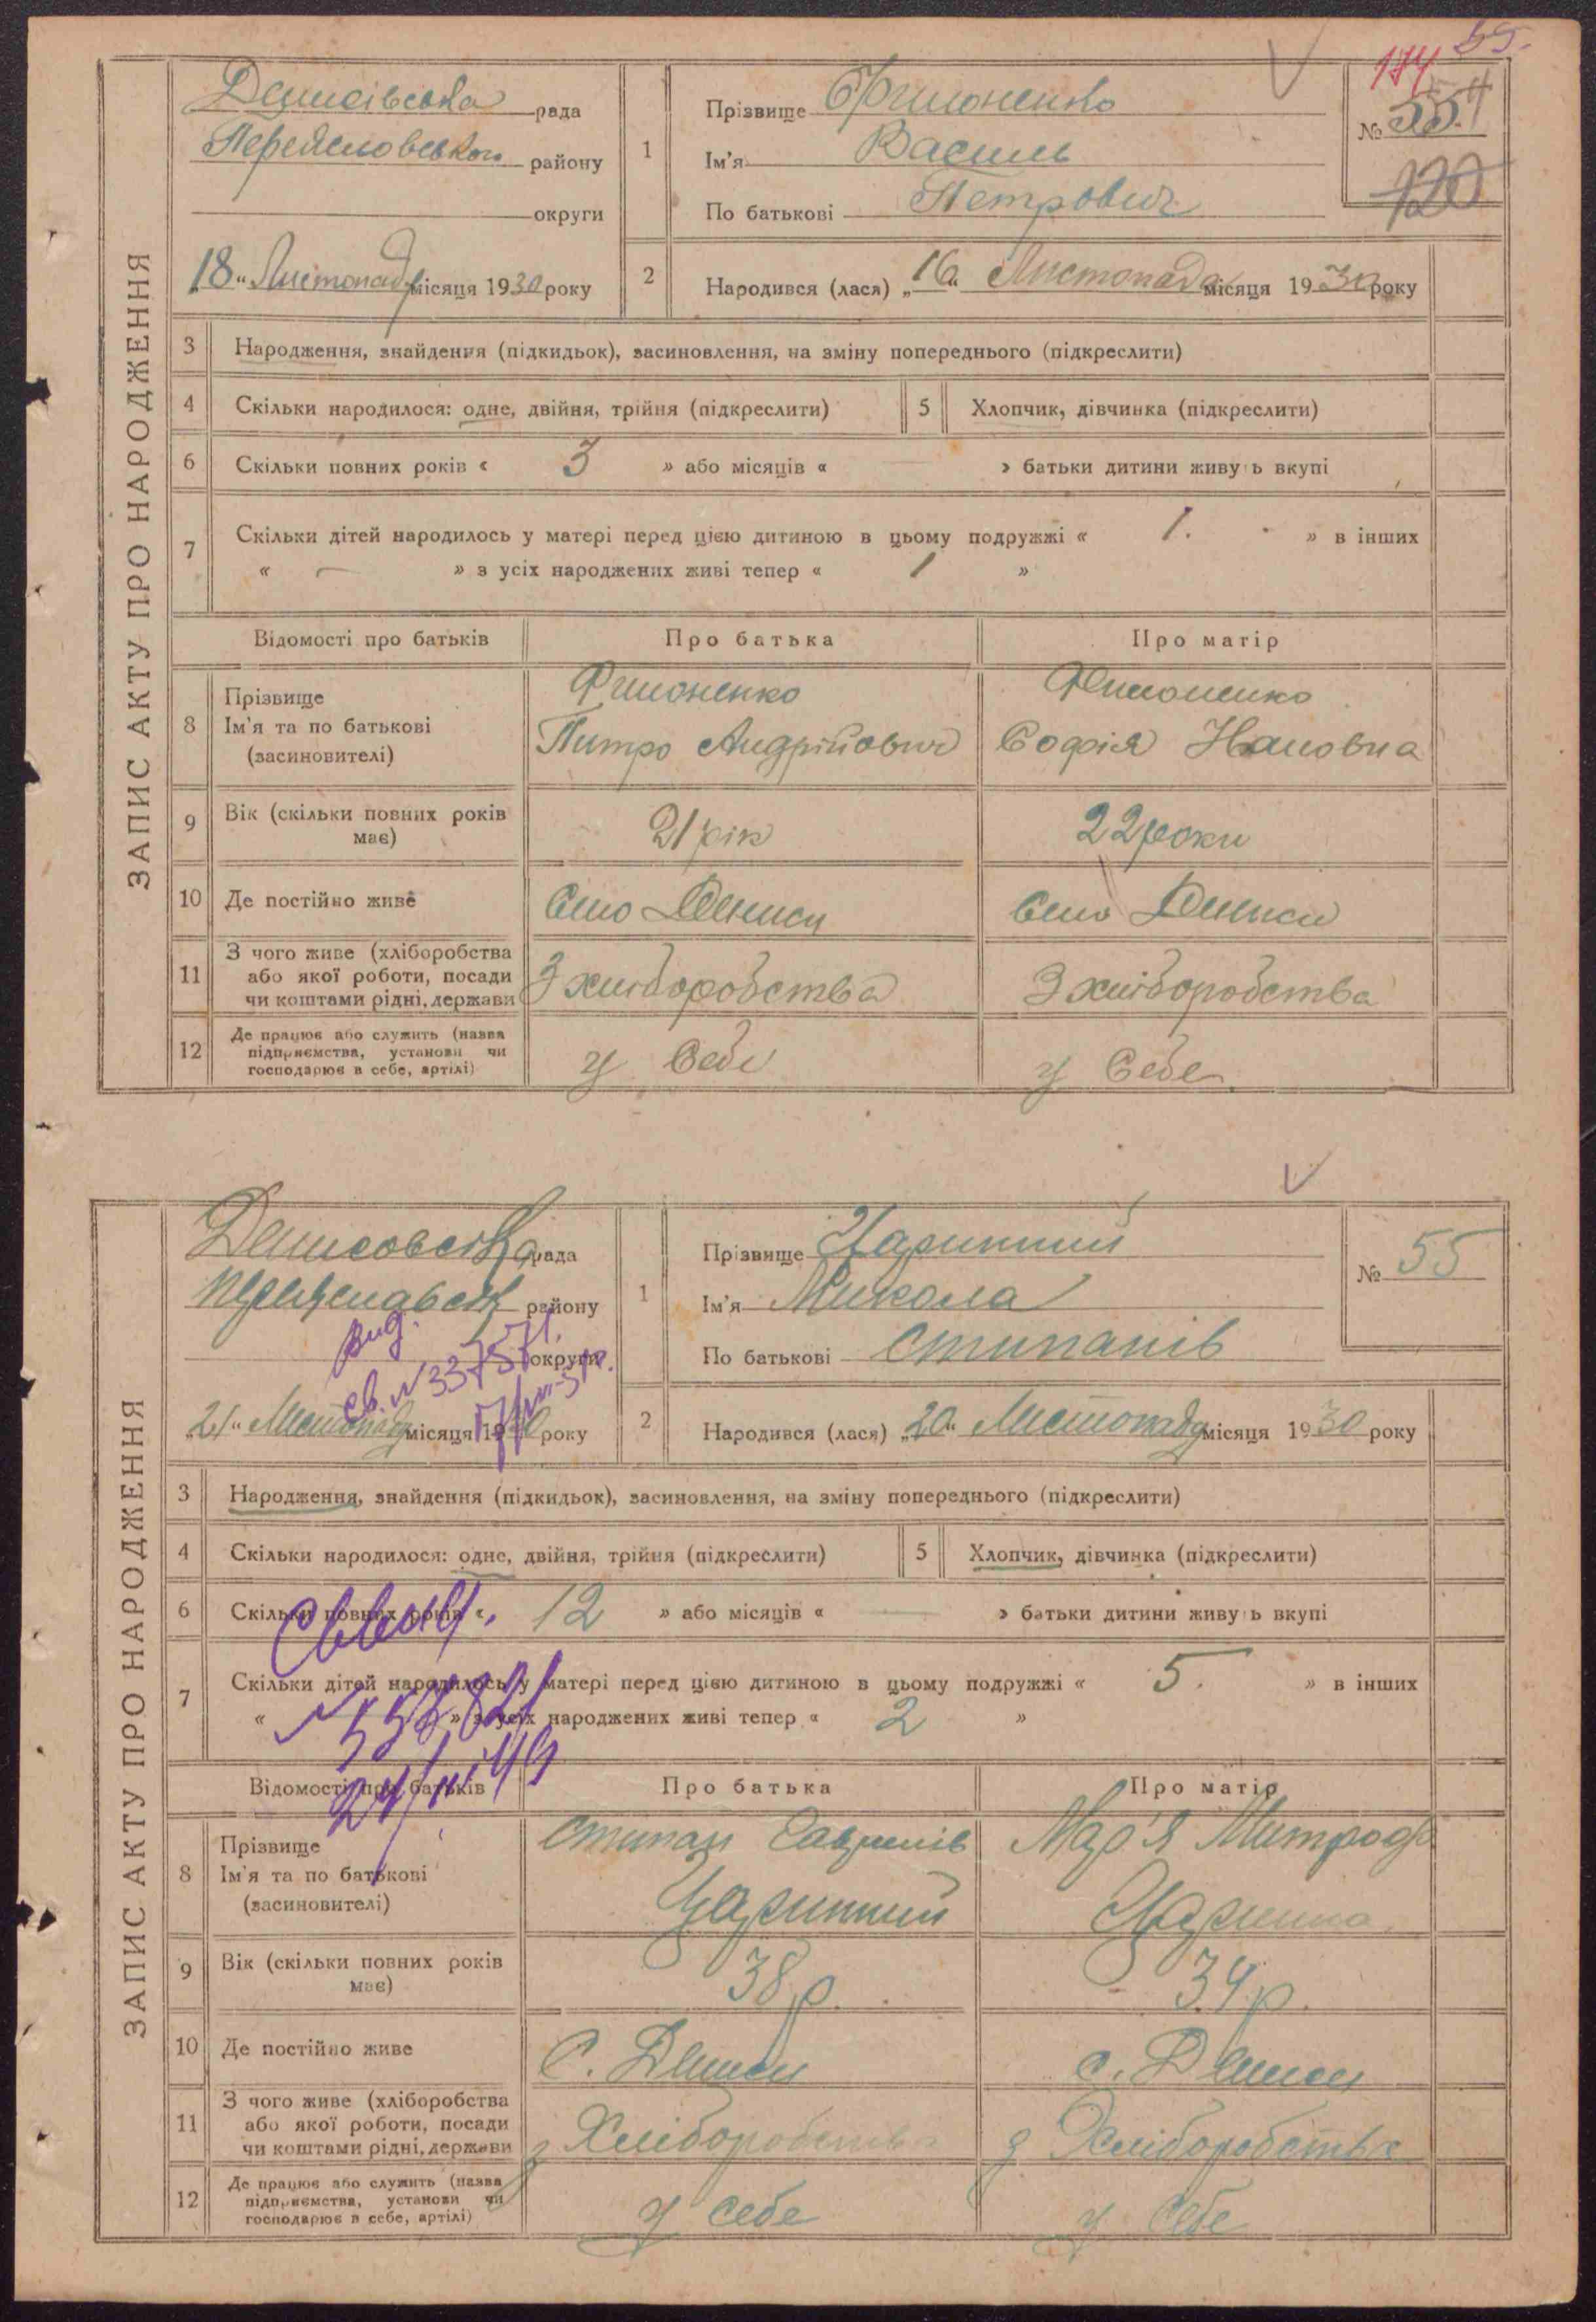 174 55.
ЗАПИС АКТУ ПРО НАРОДЖЕННЯ
Денисівська рада
Переяславського району
округи
18 „ Листопада місяця 1930 року
1
Прізвище Филоненко
Ім'я Василь
По батькові Петрович
№ 54
120
2
Народився (лася) „16„ Листопада місяця 1930 року
3 Народження, знайдення (підкидьок), засиновлення, на зміну попереднього (підкреслити)
4 Скільки народилося: одне, двійня, трійня (підкреслити)
5 Хлопчик, дівчинка (підкреслити)
6 Скільки повних років « 3 » або місяців « — » батьки дитини живуть вкупі
7 Скільки дітей народилось у матері перед цією дитиною в цьому подружжі « 1. » в інших
« — » з усіх народжених живі тепер « 1 »
Відомості про батьків Про батька Про матір
8 Прізвище
Ім'я та по батькові
(засиновителі)
Филоненко
Питро Андрійович
Филоненко
Софія
9 Вік (скільки повних років має)
21 рік
22 роки
10 Де постійно живе
Село Дениси
Село Дениси
11 З чого живе (хліборобства
або якої роботи, посади
чи коштами рідні, держави
З хліборобства
З хліборобства
12 Де працює або служить (назва
підприємства, установи чи
господарює в себе, артілі)
у Себе
у Себе
ЗАПИС АКТУ ПРО НАРОДЖЕННЯ
Денисовська рада
району
округи
вид.
св. № 337571.
„21„ Листопаду місяця 1930 року
1
Прізвище Царинний
Ім'я Микола
По батькові Стипанів
№ 55
2
Народився (лася) „20„ Листопаду місяця 1930 року
3 Народження, знайдення (підкидьок), засиновлення, на зміну попереднього (підкреслити)
4 Скільки народилося: одне, двійня, трійня (підкреслити)
5 Хлопчик, дівчинка (підкреслити)
6 Скільки повних років « 12 » або місяців « — » батьки дитини живуть вкупі
7 Скільки дітей народилось у матері перед цією дитиною в цьому подружжі « 5. » в інших
« » з усіх народжених живі тепер « 2 »
Відомості про батьків Про батька Про матір
8 Прізвище
Ім'я та по батькові
(засиновителі)
Стипан Гаврилів
Царинний
Мар'я Митроф
Царинна
9 Вік (скільки повних років має)
38 р.
34 р.
10 Де постійно живе
С. Дениси
с. Дениси
11 З чого живе (хліборобства
або якої роботи, посади
чи коштами рідні, держави
з Хліборобства
з Хліборобства
12 Де працює або служить (назва
підприємства, установи чи
господарює в себе, артілі)
у себе
у себе